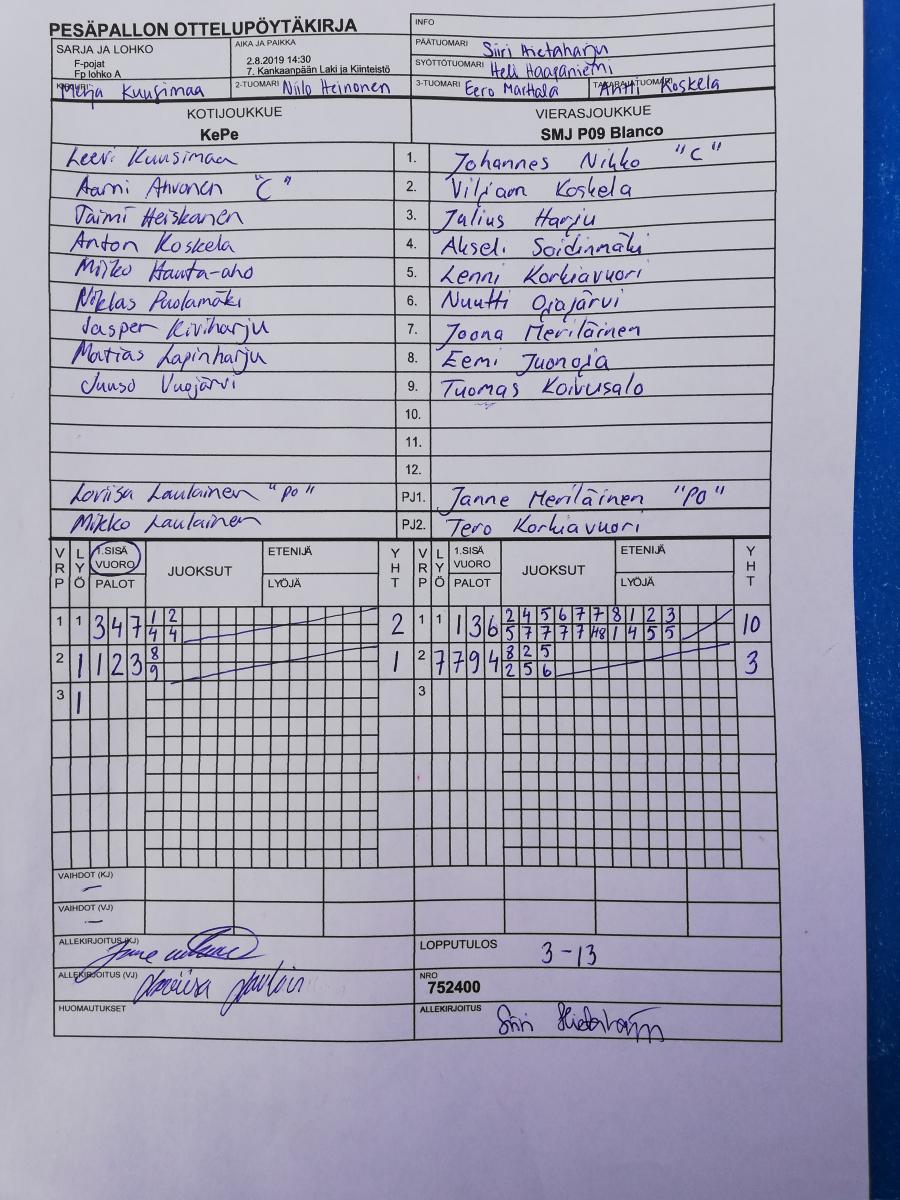 PESÄPALLON OTTELUPÖYTÄKIRJA
INFO
SARJA JA LOHKO
F-pojat
Fp lohko A
AIKA JA PAIKKA
2.8.2019 14:30
7. Kankaanpään Laki ja Kiinteistö
PÄÄTUOMARI Siiri Hietaharju
SYÖTTÖTUOMARI Heli Haapaniemi
Merja Kuusimaa
2-TUOMARI Niilo Heinonen
3-TUOMARI Eero Marttala
TAKARAJATUOMARI Antti Koskela
KOTIJOUKKUE VIERASJOUKKUE
KePe SMJ P09 Blanco
Leevi Kuusimaa 1. Johannes Nikko "C"
Aarni Ahvonen "C" 2. Viljam Koskela
Taimi Heiskanen 3. Julius Harju
Anton Koskela 4. Akseli Soidinmäki
Miiko Hauta-aho 5. Lenni Korkiavuori
Niklas Puolamäki 6. Nuutti Ojajärvi
Jasper Kiviharju 7. Joona Meriläinen
Matias Lapinharju 8. Eemi Juonoja
Juuso Vuojärvi 9. Tuomas Koivusalo
10.
11.
12.
Loviisa Laulainen "PO" PJ1. Janne Meriläinen "PO"
Mikko Laulainen PJ2. Tero Korkiavuori
VRP LYÖ 1.SISÄ VUORO PALOT JUOKSUT ETENIJÄ LYÖJÄ YHT VRP LYÖ 1.SISÄ VUORO PALOT JUOKSUT ETENIJÄ LYÖJÄ YHT
1 1 3 4 7 1 2 2 1 1 1 3 6 2 4 5 6 7 7 8 1 2 3 10
4 4 5 7 7 7 7 H8 1 4 5 5
2 1 1 2 3 8 1 2 7 7 9 4 8 2 5 3
9 2 5 6
3 1 3
VAIHDOT (KJ) –
VAIHDOT (VJ) –
ALLEKIRJOITUS (KJ)
LOPPUTULOS 3-13
ALLEKIRJOITUS (VJ) Loviisa Laulain
NRO
752400
HUOMAUTUKSET
ALLEKIRJOITUS Siiri Hietaharju